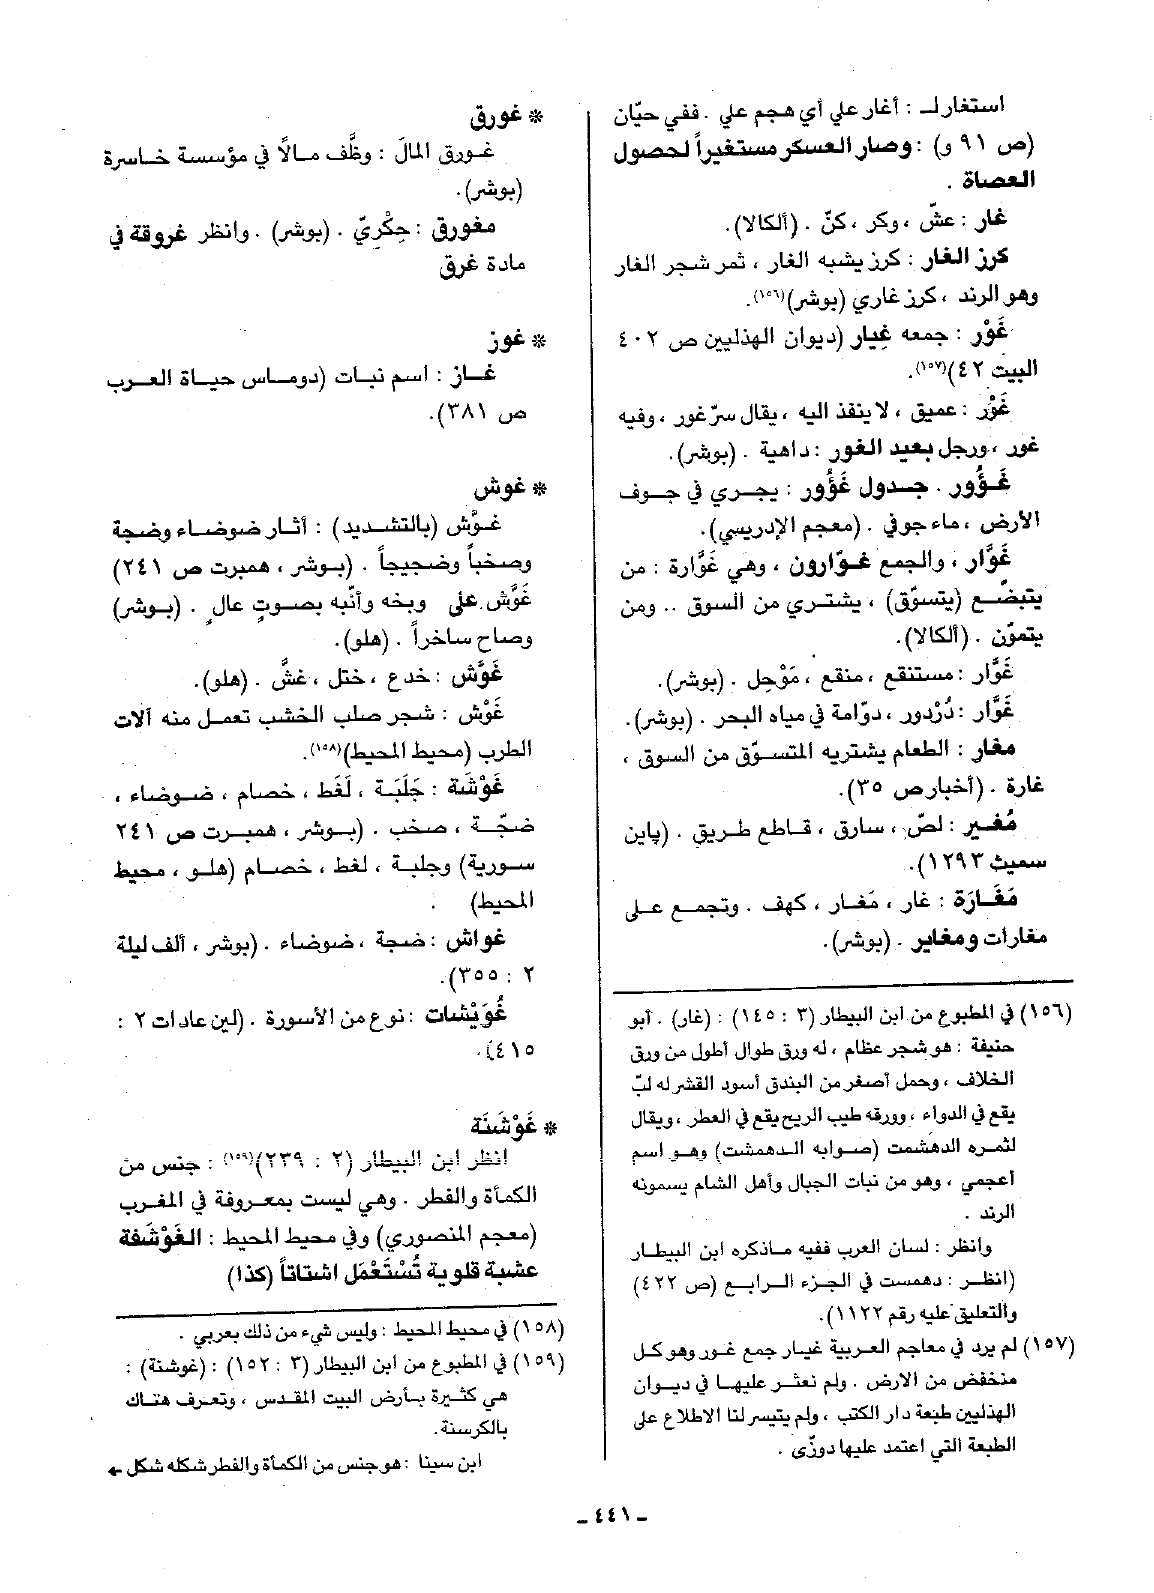 استغار لـ : أغار علي أي هجم علي . ففي حيّان
(ص ٩١ و) : وصار العسكر مستغيراً لحصول
العصاة .
غار : عشّ ، وكر ، كنّ . (ألكالا).
كرز الغار : كرز يشبه الغار ، ثمر شجر الغار
وهو الرند ، كرز غاري (بوشر)(١٥٦).
غَوْر : جمعه غِيار (ديوان الهذليين ص ٤٠٢
البيت ٤٢)(١٥٧).
غَوْر : عميق ، لا ينفذ اليه ، يقال سرّ غور ، وفيه
غور ، ورجل بعيد الغور : داهية . (بوشر).
غَـؤُور . جـدول غَؤُور : يجـري في جـوف
الأرض ، ماء جوفي . (معجم الإدريسي).
غَوَّار ، والجمع غـوّارون ، وهي غَوَّارة : من
يتبضّـع (يتسوّق) ، يشتـري من السوق .. ومن
يتموّن . (ألكالا).
غَوَّار : مستنقع ، منقع ، مَوْحِل . (بوشر).
غَوَّار : دُرْدور ، دوّامة في مياه البحر . (بوشر).
مغار : الطعام يشتريه المتسـوّق من السوق ،
غارة . (أخبار ص ٣٥).
مُغـير : لصّ ، سارق ، قـاطع طـريق . (پاين
سميث ١٢٩٣).
مَغَـارَة : غار ، مَغـار ، كهف . وتجمـع علـى
مغارات ومغاير . (بوشر).
(١٥٦) في المطبوع من ابن البيطار (٣ : ١٤٥) : (غار) . أبو
حنيفة : هو شجر عظام ، له ورق طوال أطول من ورق
الخلاف ، وحمل أصغر من البندق أسود القشر له لبّ
يقع في الدواء ، وورقه طيب الريح يقع في العطر ، ويقال
لثمره الدهشمت (صـوابه الـدهمشت) وهـو اسم
أعجمي ، وهو من نبات الجبال وأهل الشام يسمونه
الرند .
وانظر : لسان العرب ففيه مـاذكره ابن البيطـار
(انظـر : دهمست في الجزء الـرابـع (ص ٤٢٢)
والتعليق عليه رقم ١١٢٢).
(١٥٧) لم يرد في معاجم العربية غيـار جمع غـور وهو كـل
منخفض من الارض . ولم نعثـر عليهـا في ديـوان
الهذليين طبعة دار الكتب ، ولم يتيسر لنا الاطلاع على
الطبعة التي اعتمد عليها دوزّى .
* غورق
غـورق المالَ : وظَّف مـالًا في مؤسسة خـاسرة
(بوشر).
مغورق : حِكْريّ . (بوشر) . وانظر غروقة في
مادة غرق
* غوز
غـاز : اسم نبـات (دومـاس حيـاة العـرب
ص ٣٨١).
* غوش
غـوَّش (بالتشديد) : أثـار ضوضـاء وضجة
وصخباً وضجيجاً . (بـوشر ، همبرت ص ٢٤١)
غَوَّش على وبخه وأنّبه بصـوتٍ عالٍ . (بوشر)
وصاح ساخراً . (هلو).
غَوَّش : خدع ، ختل ، غشَّ . (هلو).
غَوْش : شجر صلب الخشب تعمـل منه آلات
الطرب (محيط المحيط)(١٥٨).
غَوْشَة : جَلَبَة ، لَغَط ، خصام ، ضـوضاء ،
ضجّـة ، صخب . (بـوشر ، همبـرت ص ٢٤١
سـورية) وجلبـة ، لغط ، خصـام (هلـو ، محيط
المحيط) .
غواش : ضجة ، ضوضاء . (بوشر ، ألف ليلة
٢ : ٣٥٥).
غُوَيْشات : نوع من الأسورة . (لين عادات ٢ :
٤١٥).
* غَوْشَنَة
انظر ابن البيطار (٢ : ٢٣٩)(١٥٩) : جنس من
الكمأة والفطر . وهي ليست بمعـروفة في المغـرب
(معجم المنصوري) وفي محيط المحيط : الغَوْشَفة
عشبة قلوية تُسْتَعْمَل اشتاتاً (كذا)
(١٥٨) في محيط المحيط : وليس شيء من ذلك بعربي .
(١٥٩) في المطبوع من ابن البيطار (٣ : ١٥٢) : (غوشنة) :
هي كثيرة بـأرض البيت المقدس ، وتعـرف هنـاك
بالكرسنة.
ابن سينا : هو جنس من الكمأة والفطر شكله شكل ←
ـ ٤٤١ ـ